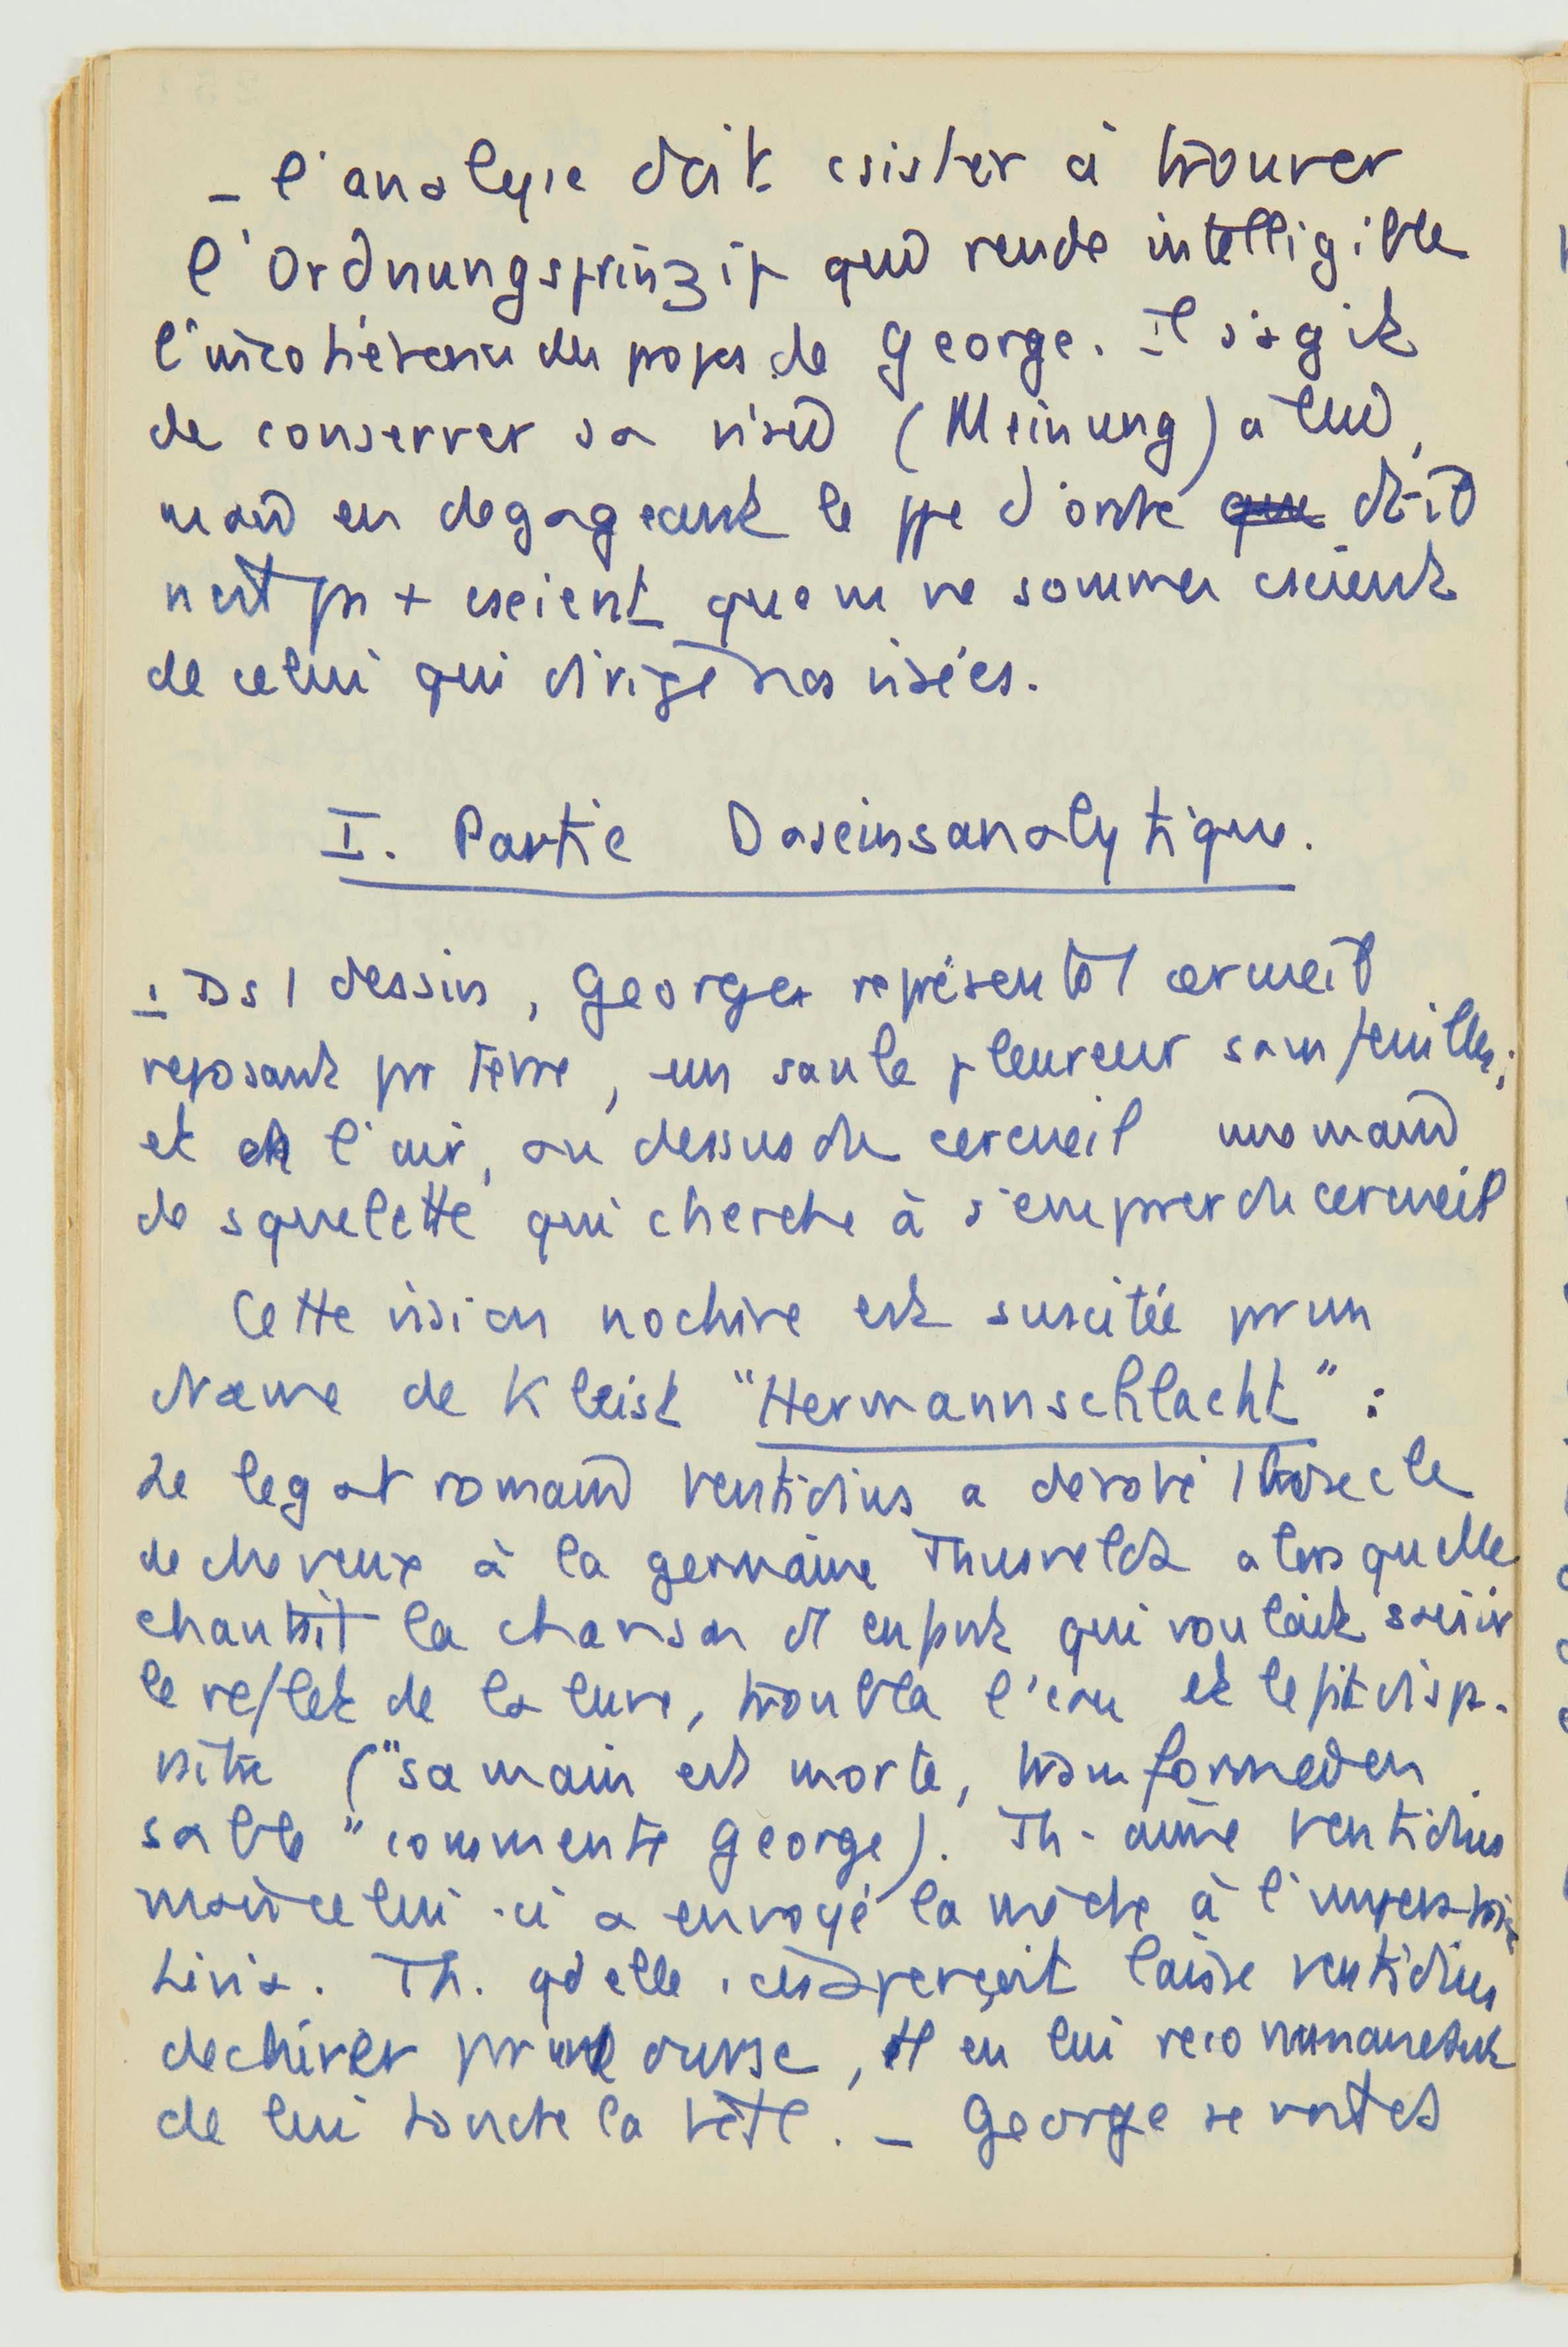 - l'analyse doit csister à trouver
l'Ordnungsprinzip qui rende intelligible
l'incohérence des propos de George. Il s'agit
de conserver sa visée (Meinung) à lui,
mais en dégageant le ppe d'ordre que dt il
n'est pas + cscient que ns ne sommes cscients
de celui qui dirige nos visées.
I. Partie Daseinsanalytique.
- Ds 1 dessin, George représente 1 cercueil
reposant par terre, un saule pleureur sans feuilles;
et ds l'air, au dessus du cercueil une main
de squelette qui cherche à s'emparer du cercueil
Cette vision est suscitée par un
drame de Kleist "Hermannschlacht" :
Le legat romain Ventidius a dérobé 1 boucle
de cheveux à la germaine Thusnelda alors qu'elle
chantait la chanson d'1 enfant qui voulait saisir
le reflet de la lune, troubla l'eau et le vit disp-
raître ("sa main est morte, transformée en
sable" commente George). Th. aime Ventidius
mais celui-ci a envoyé la mèche à l'impératrice
Livia. Th. qd elle s'en aperçoit laisse Ventidius
déchirer par une ourse, et en lui recommandant
de lui tondre la tête. - George se